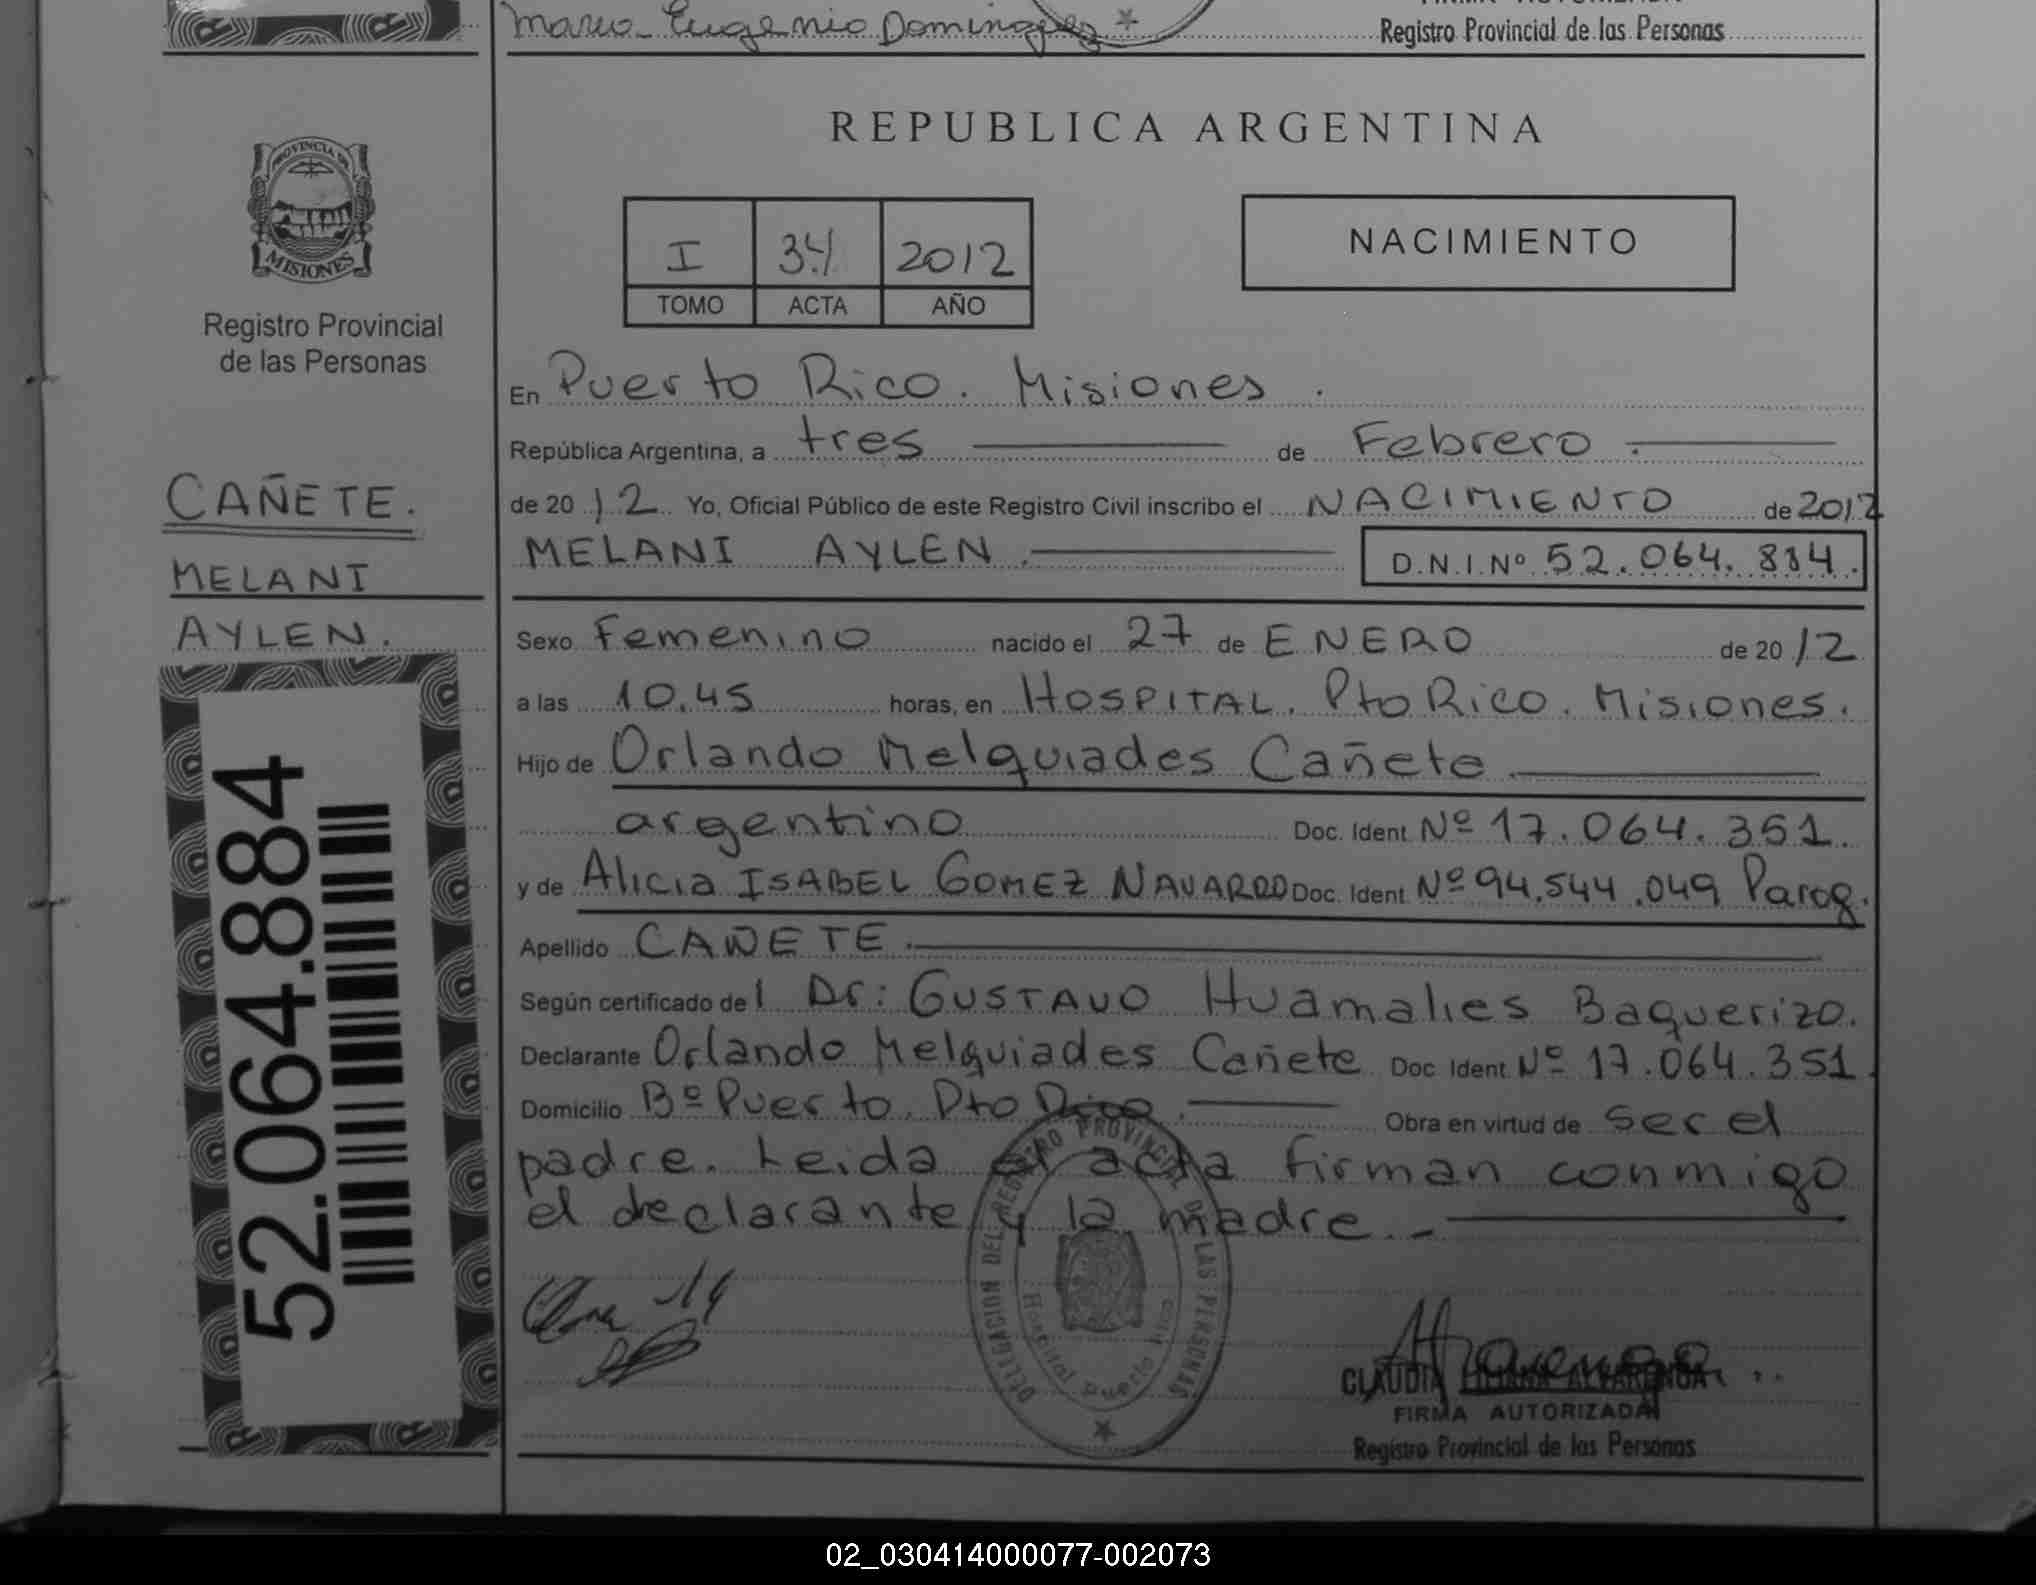 Mario Eugenio Dominguez
Registro Provincial de las Personas
PROVINCIA DE
MISIONES
Registro Provincial
de las Personas
REPUBLICA ARGENTINA
I 34 2012
TOMO ACTA AÑO
NACIMIENTO
CAÑETE.
MELANI
AYLEN.
52.064.884
En Puerto Rico. Misiones.
República Argentina, a tres de Febrero
de 2012 Yo, Oficial Público de este Registro Civil inscribo el NACIMIENTO de 2012
MELANI AYLEN. D.N.I.Nº 52.064.884.
Sexo Femenino nacido el 27 de ENERO de 2012
a las 10.45 horas, en HOSPITAL. Pto Rico. Misiones.
Hijo de Orlando Melquiades Cañete
argentino Doc. Ident. Nº 17.064.351.
y de Alicia ISABEL GOMEZ NAVARRO Doc. Ident. Nº 94.544.049 Parag.
Apellido CAÑETE.
Según certificado del Dr: GUSTAVO Huamalies Baquerizo.
Declarante Orlando Melquiades Cañete Doc. Ident. Nº 17.064.351.
Domicilio Bº Puerto. Pto Rico. Obra en virtud de ser el
padre. Leida el acta firman conmigo
el declarante y la madre.-
DELEGACION DEL REGISTRO PROVINCIAL DE LAS PERSONAS
Hospital Puerto Rico
CLAUDIA LILIANA ALVARENGA
FIRMA AUTORIZADA
Registro Provincial de las Personas
02_030414000077-002073